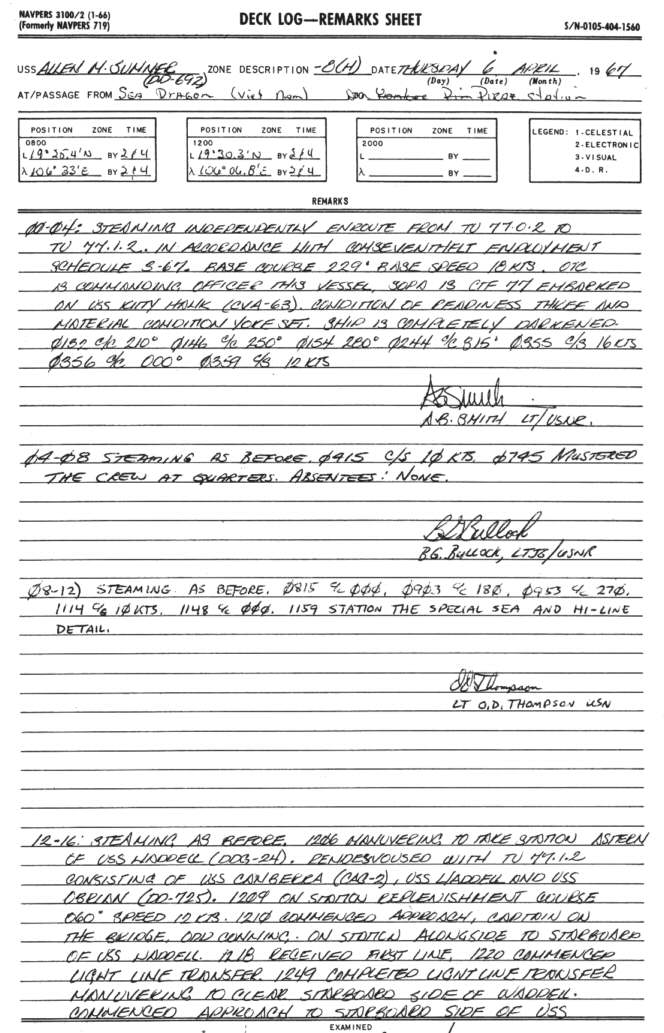 NAVPERS 3100/2 (1-66)
(Formerly NAVPERS 719)
DECK LOG—REMARKS SHEET
S/N-0105-404-1560
USS ALLEN M. SUMNER (DD-692) ZONE DESCRIPTION -8(H) DATE THURSDAY 6 APRIL, 1967
(Day) (Date) (Month)
AT/PASSAGE FROM SEA DRAGON (Viet Nam) Station
POSITION ZONE TIME
0800
L 19° 25.4'N BY 2/4
λ 106° 33'E BY 2/4
POSITION ZONE TIME
1200
L 19° 30.3'N BY 2/4
λ 106° 06.8'E BY 2/4
POSITION ZONE TIME
2000
L BY
λ BY
LEGEND: 1-CELESTIAL
2-ELECTRONIC
3-VISUAL
4-D. R.
REMARKS
00-04: STEAMING INDEPENDENTLY ENROUTE FROM TU 77.0.2 TO
TU 77.1.2. IN ACCORDANCE WITH COMSEVENTHFLT EMPLOYMENT
SCHEDULE 3-67. BASE COURSE 229° BASE SPEED 18 KTS. OTC
IS COMMANDING OFFICER THIS VESSEL, SOPA IS CTF 77 EMBARKED
ON USS KITTY HAWK (CVA-63). CONDITION OF READINESS THREE AND
MATERIAL CONDITION YOKE SET. SHIP IS COMPLETELY DARKENED.
0132 C/C 210° 0146 C/C 250° 0154 280° 0244 C/C 315° 0355 C/S 16 KTS
0356 C/C 000° 0359 C/S 12 KTS
AB Smith
A.B. SMITH LT/USNR.
04-08 STEAMING AS BEFORE. 0415 C/S 10 KTS. 0745 MUSTERED
THE CREW AT QUARTERS. ABSENTEES: NONE.
BG Bullock
B.G. BULLOCK, LTJG/USNR
08-12) STEAMING AS BEFORE. 0815 C/C 000, 0903 C/C 180, 0953 C/C 270.
1114 C/S 10 KTS. 1148 C/C 000. 1159 STATION THE SPECIAL SEA AND HI-LINE
DETAIL.
OD Thompson
LT O.D. THOMPSON USN
12-16: STEAMING AS BEFORE. 1206 MANUVERING TO TAKE STATION ASTERN
OF USS WADDELL (DDG-24). RENDESVOUSED WITH TU 77.1.2
CONSISTING OF USS CANBERRA (CAG-2), USS WADDELL AND USS
OBRIAN (DD-725). 1209 ON STATION REPLENISHMENT COURSE
060° SPEED 12 KTS. 1210 COMMENCED APPROACH, CAPTAIN ON
THE BRIDGE, OOD CONNING. ON STATION ALONGSIDE TO STARBOARD
OF USS WADDELL. 1218 RECEIVED FIRST LINE, 1220 COMMENCED
LIGHT LINE TRANSFER 1249 COMPLETED LIGHT LINE TRANSFER
MANUVERING TO CLEAR STARBOARD SIDE OF WADDELL.
COMMENCED APPROACH TO STARBOARD SIDE OF USS
EXAMINED